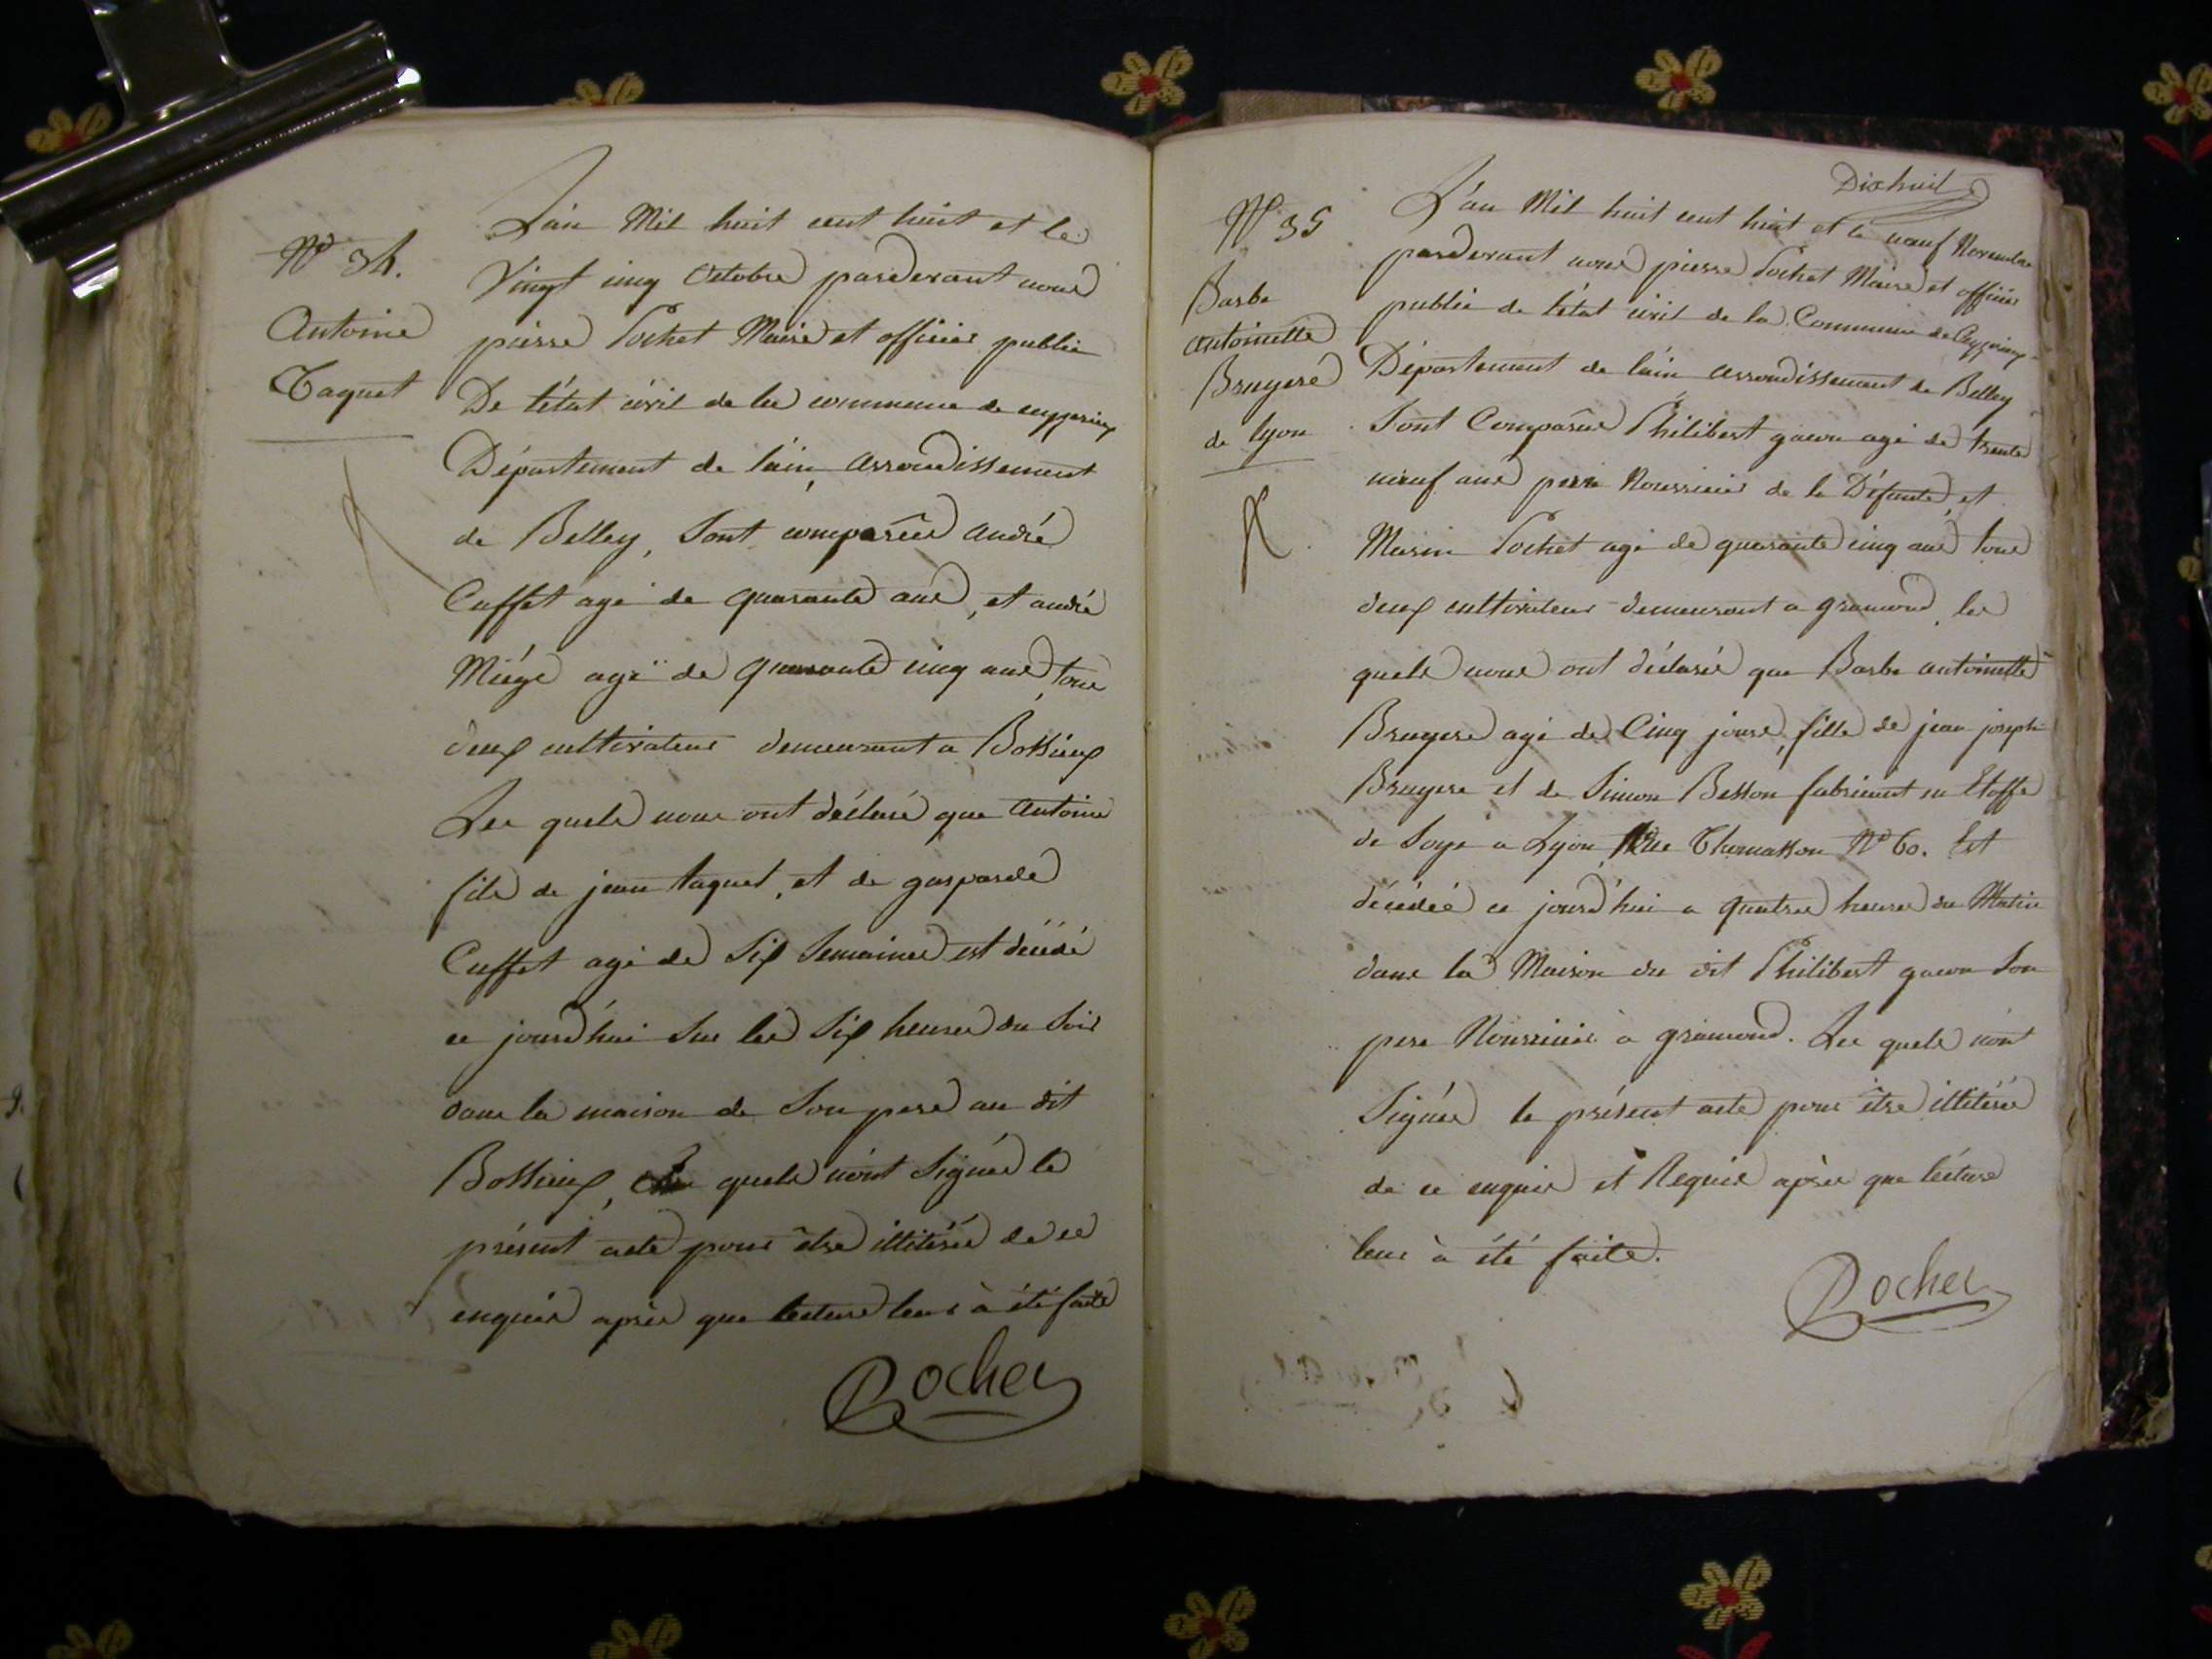 N° 34.
Antoine
Taquet
L'an Mil huit cent huit et le
Vingt cinq Octobre pardevant nous
pierre Pochet Maire et officier public
De l'état civil de la commune de ceyzerieux
Département de l'ain, arrondissement
de Belley, Sont comparûs andré
Cuffet agé de quarante ans, et andré
Miége agé de quarante cinq ans, tous
deux cultivateurs demeurant a Bossieux
Les quels nous ont déclaré que antoine
fils de jean taquet, et de gasparde
Cuffet agé de Six Semaines est décédé
ce jourd'hui Sur les Six heures du Soir
dans la maison de Son pere au dit
Bossieux, quels n'ont Signés le
présent acte pour être illitérés de ce
enquis après que lecture leur à été faite
Rochex
Dixhuit
N° 35
Barbe
antoinette
Bruyere
de lyon
L'an Mil huit cent huit et le neuf Novembre
pardevant nous pierre Pochet Maire et officier
public de l'état civil de la Commune de Ceyzerieux
Département de l'ain arrondissement de Belley
Sont Comparûs Philibert gacon agé de trente
neuf ans pere Nourricier de la Défunte, et
Marin Pochet agé de quarante cinq ans tous
deux cultivateurs demeurant a gramond, les
quels nous ont déclarés que Barbe antoinette
Bruyere agé de Cinq jours, fille de jean joseph
Bruyere et de Simon Besson fabricant en Etoffe
de Soye a Lyon Rue Thomasson N° 60. Est
décédée ce jourd'hui a quatre heures du Matin
dans la Maison du dit Philibert gacon Son
pere Nourricier à gramond. Les quels n'ont
Signés le présent acte pour être illitérés
de ce enquis et Requis après que lecture
leur à été faite.
Rochex